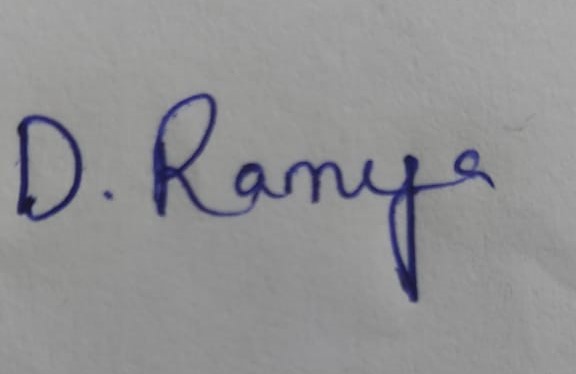 D. Ramya